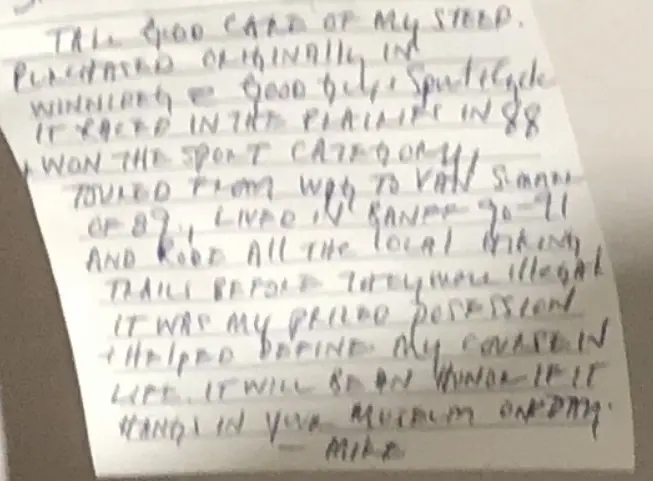 TAKE GOOD CARE OF MY STEED.
PURCHASED ORIGINALLY IN
WINNIPEG @ GOOD Guys Sport & Cycle
IT RACED IN THE PRAIRIES IN 88
+ WON THE SPORT CATEGORY,
TOURED FROM WPG TO VAN SUMMER
OF 89, LIVED IN BANFF 90-91
AND RODE ALL THE LOCAL HIKING
TRAILS BEFORE THEY WERE illEGAL
IT WAS MY PRIZED POSESSION
+ HELPED DEFINE MY COURSE IN
LIFE. IT WILL BE AN HONOR IF IT
HANGS IN YOUR MUSEUM ONE DAY.
- MIKE